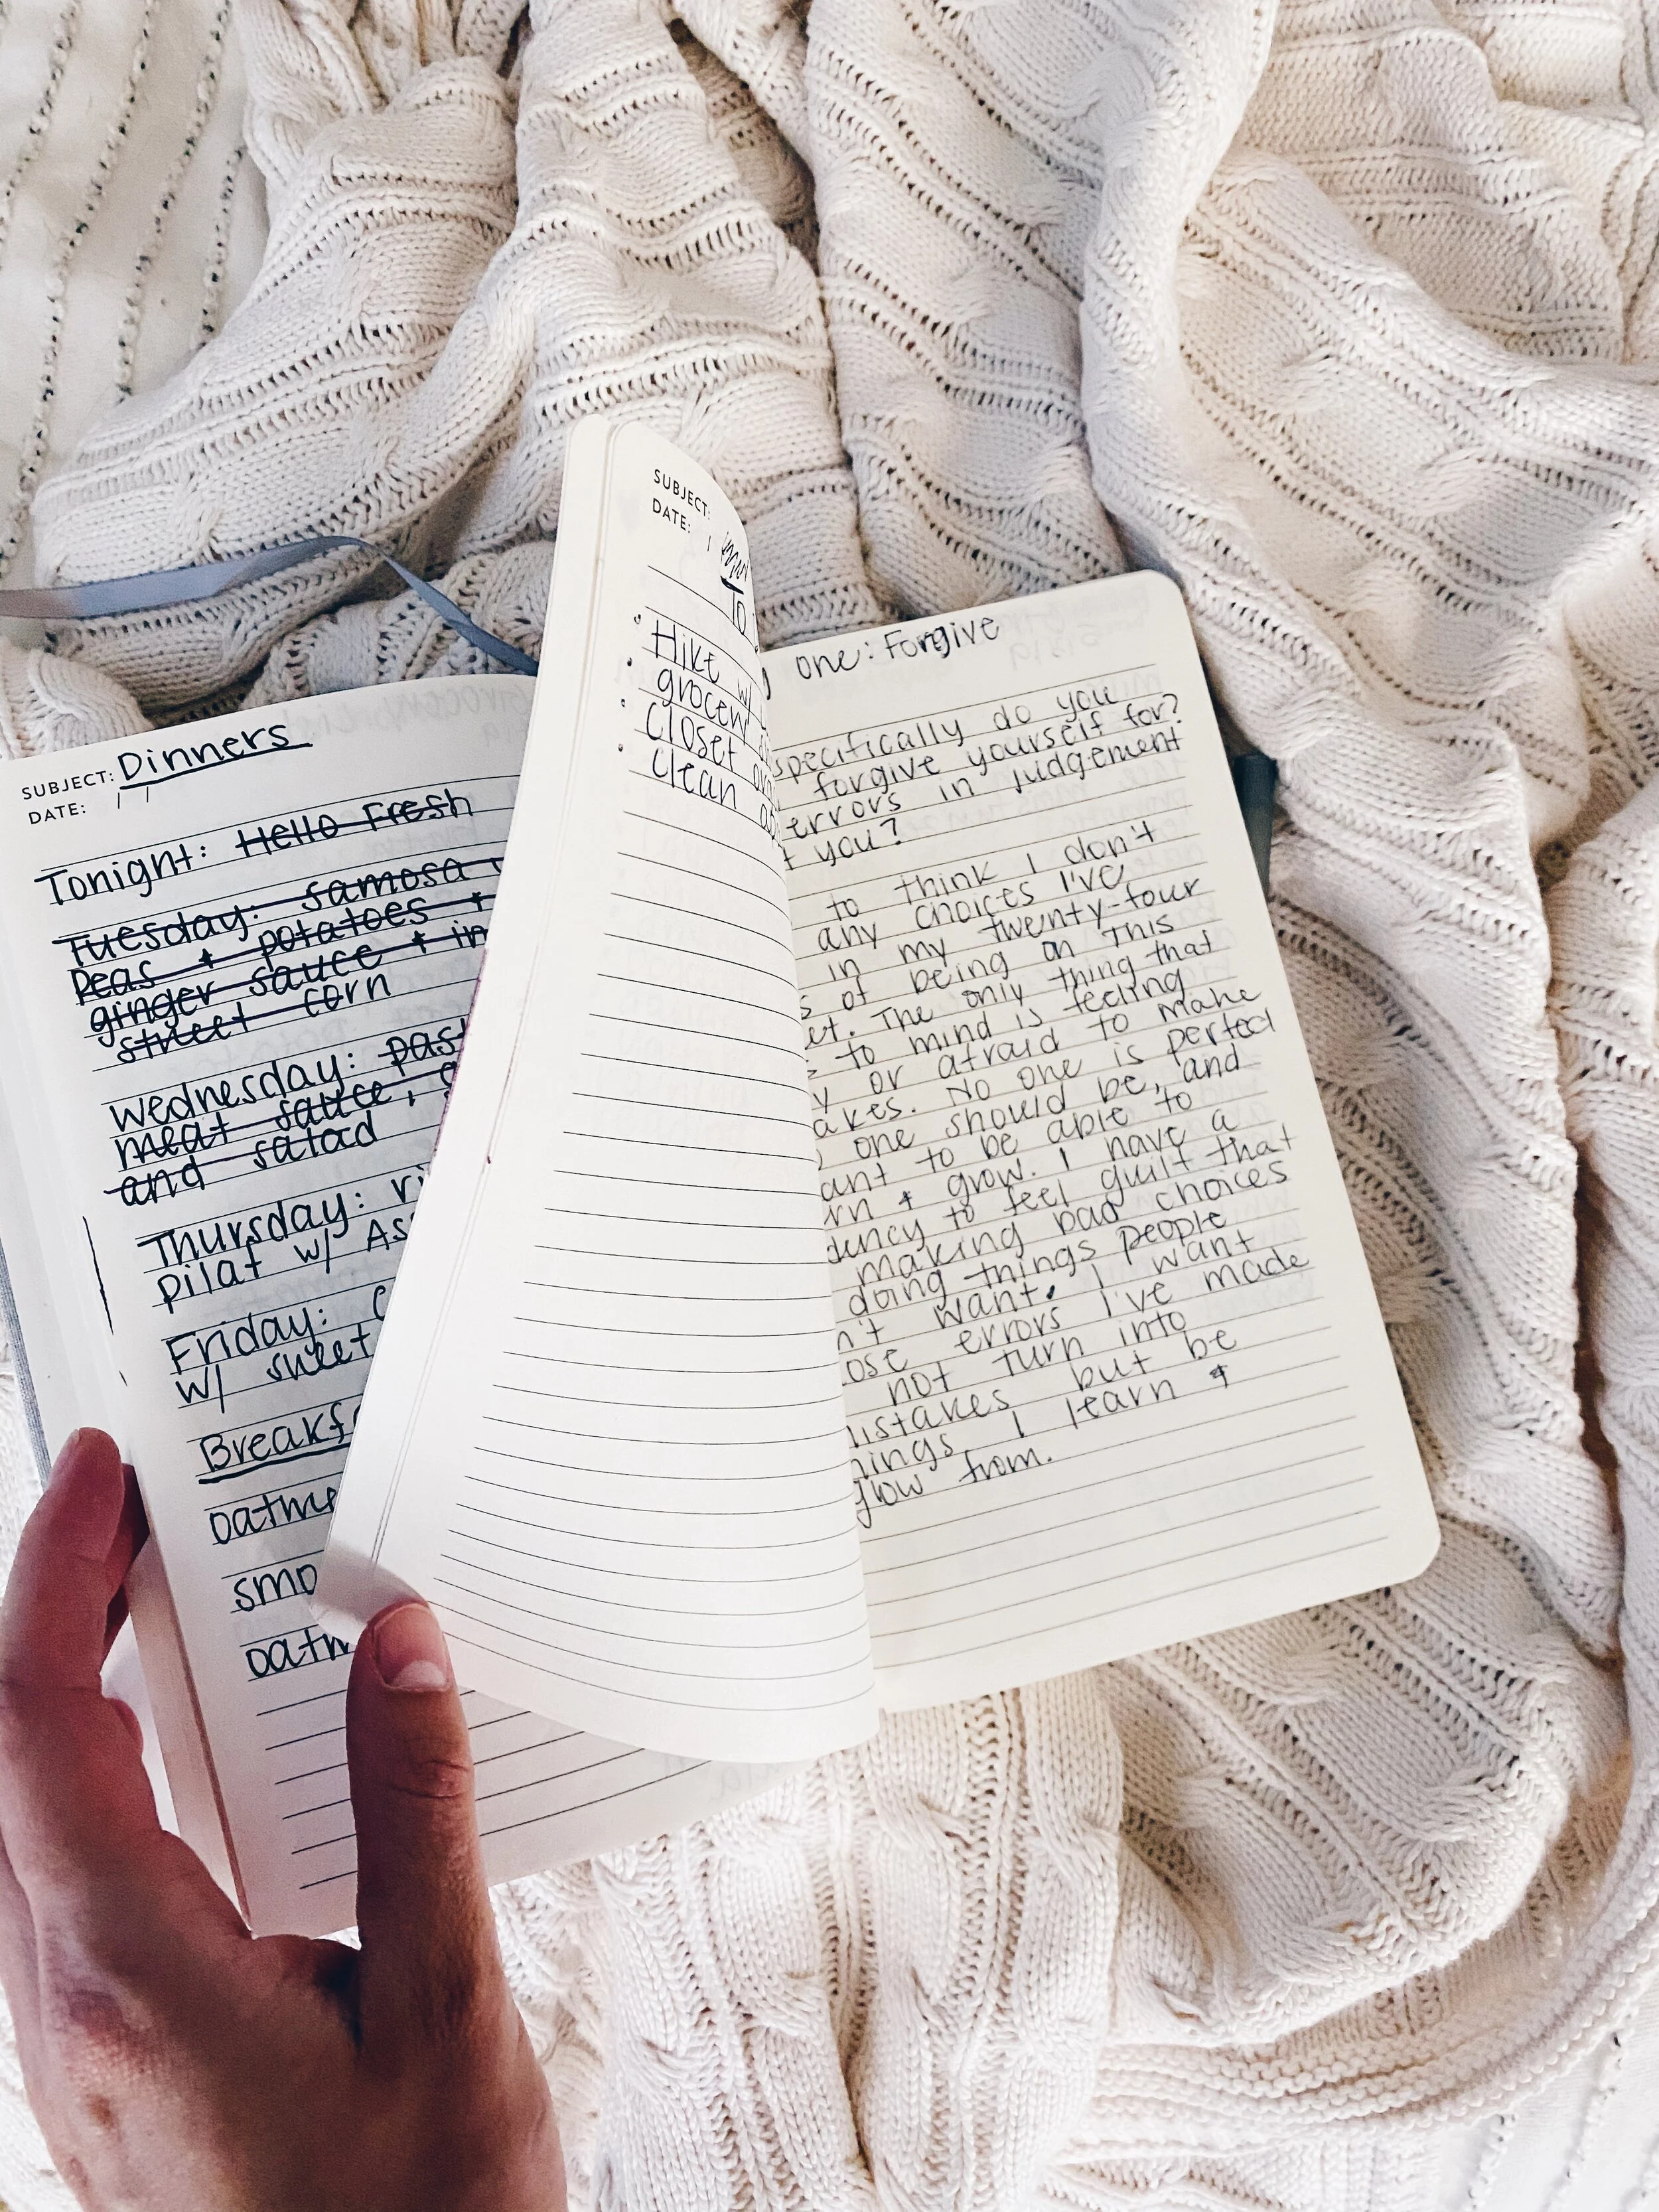 SUBJECT: Dinners
DATE: / /
Tonight: Hello Fresh
Tuesday: samosa
Peas + potatoes +
ginger sauce + in
street corn
Wednesday: past
meat sauce,
and salad
Thursday: ri
pilaf w/ As
Friday:
w/ sweet
Breakf
oatme
smo
oatm
SUBJECT:
DATE: /
To
• Hike w/
• grocery
• Closet
• Clean
one: Forgive
specifically do you
forgive yourself for?
errors in judgement
t you?
to think I don't
any choices I've
in my twenty-four
s of being on this
et. The only thing that
to mind is feeling
y or afraid to make
akes. No one is perfect
one should be, and
ant to be able to
rn + grow. I have a
dency to feel guilt that
making bad choices
doing things people
n't want. I want
ose errors I've made
not turn into
mistakes but be
hings I learn +
grow from.